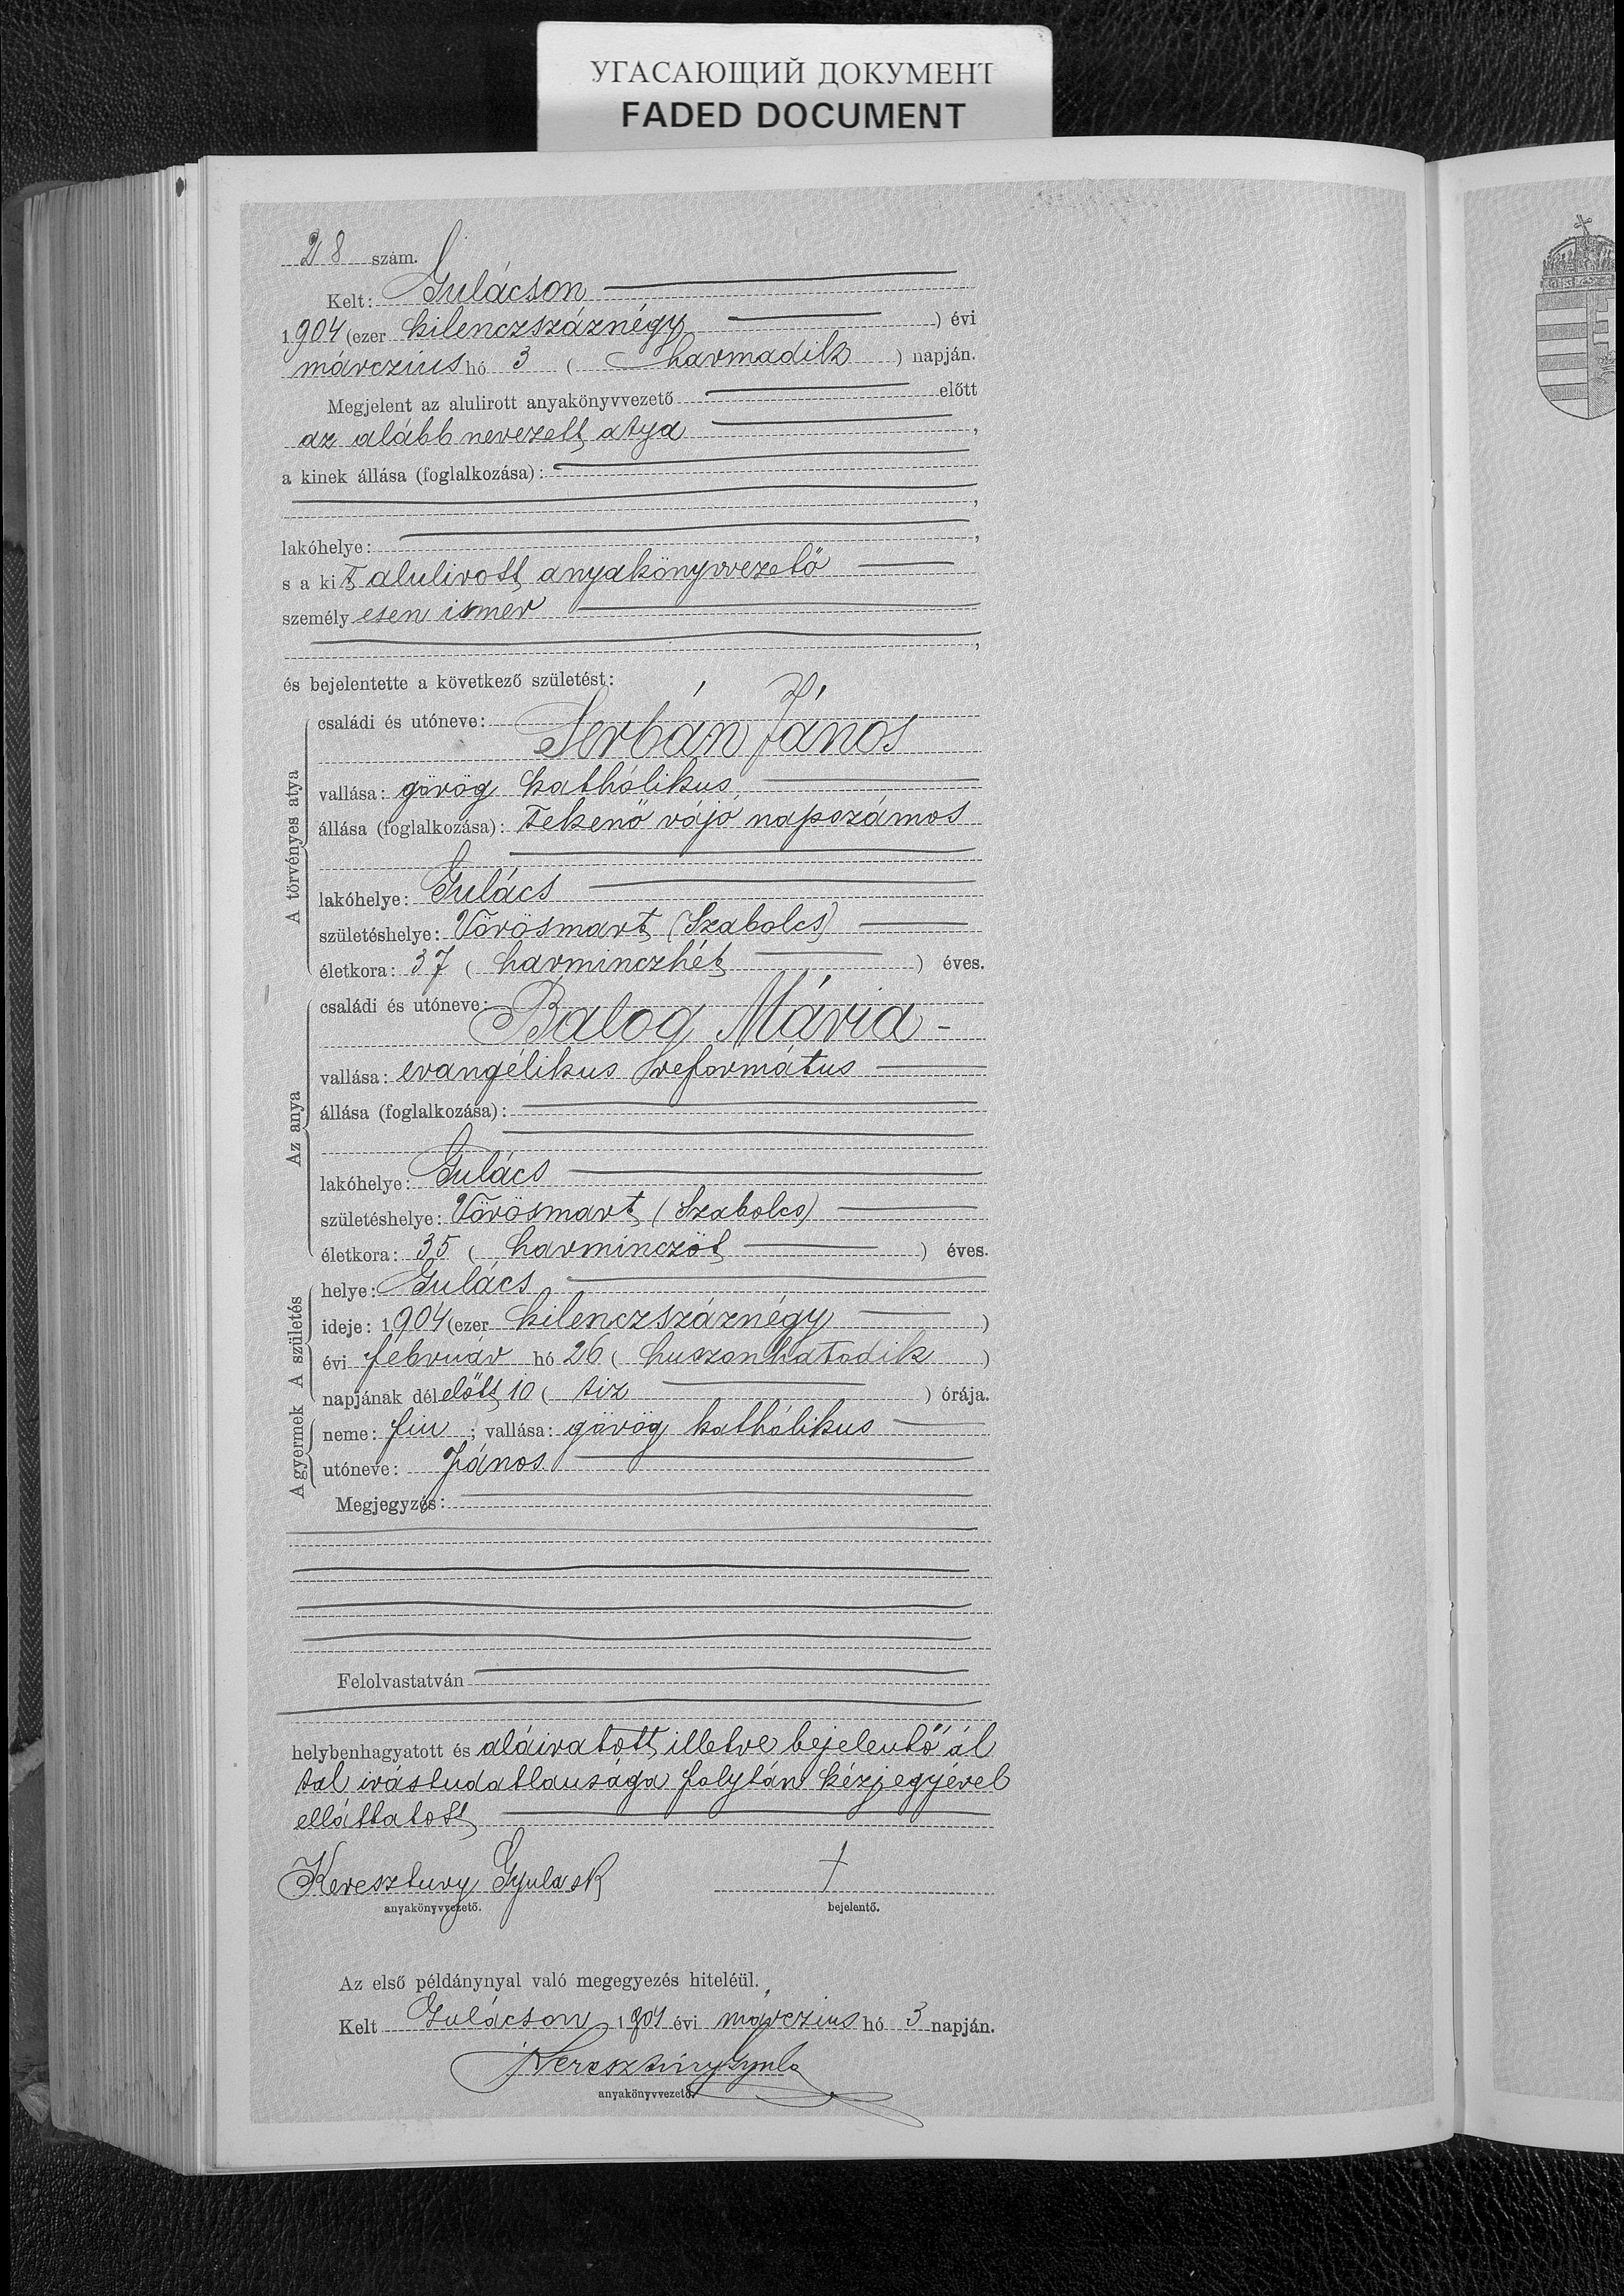 УГАСАЮЩИЙ ДОКУМЕНТ
FADED DOCUMENT
28 szám.
Kelt: Gulácson
1904 (ezer kilenczszáznégy ) évi
márczius hó 3 ( harmadik ) napján.
Megjelent az alulirott anyakönyvvezető előtt
az alább nevezett atya ,
a kinek állása (foglalkozása):
,
lakóhelye: ,
s a kit alulirott anyakönyvvezető
személyesen ismer
,
és bejelentette a következő születést:
A törvényes atya
családi és utóneve:
Serbán János
vallása: görög kathólikus
állása (foglalkozása): tekenő vájó napszámos
lakóhelye: Gulács
születéshelye: Vörösmart (Szabolcs)
életkora: 37 ( harminczhét ) éves.
Az anya
családi és utóneve:
Balog Mária -
vallása: evangélikus református
állása (foglalkozása):
lakóhelye: Gulács
születéshelye: Vörösmart (Szabolcs)
életkora: 35 ( harminczöt ) éves.
A születés
helye: Gulács
ideje: 1904 (ezer kilenczszáznégy )
évi február hó 26 ( huszonhatodik )
napjának délelőtt 10 ( tiz ) órája.
A gyermek
neme: fiu ; vallása: görög kathólikus
utóneve: János
Megjegyzés:
Felolvastatván
helybenhagyatott és aláiratott illetve bejelentő ál
tal irástudatlansága folytán kézjegyével
elláttatott
Keresztury Gyula sk †
anyakönyvvezető. bejelentő.
Az első példánynyal való megegyezés hiteléül.
Kelt Gulácson 1904 évi márczius hó 3 napján.
Keresztúry Gyula
anyakönyvvezető.